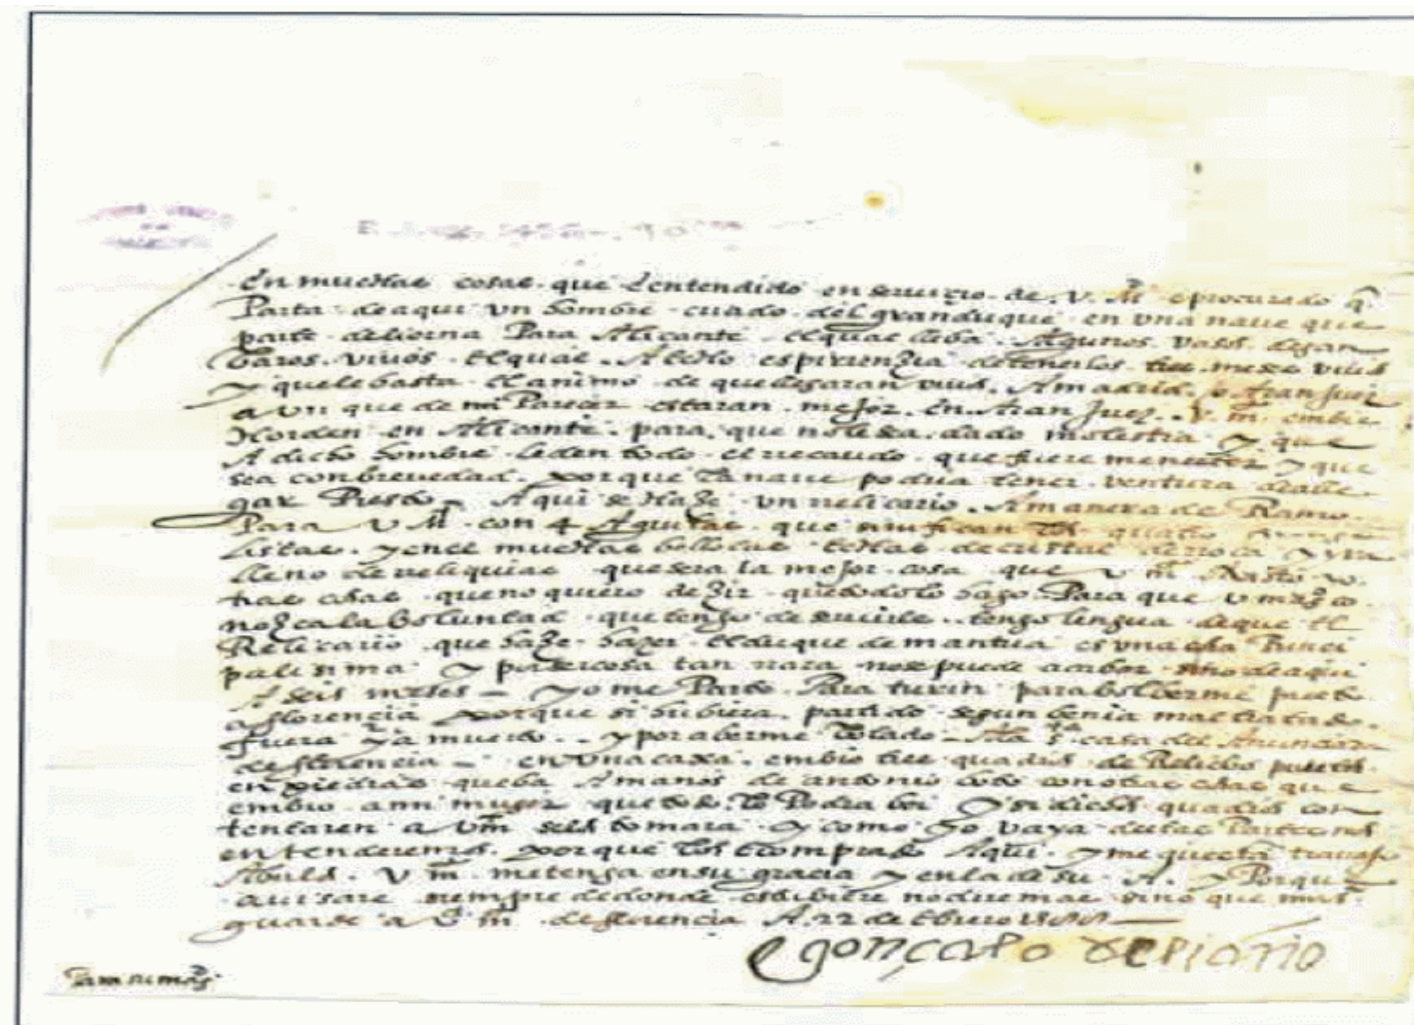 En muchas cosas que e entendido en seruiçio de V. M. e procurado q̃
Parta de aqui un hombre criado del gran duque en una naue que
parte de liorna Para Alicante el qual lleba Algunos vasos de gam
baros viuos el qual A echo espirienzia de tenerlos tres meses viuos
y que le basta el animo de que llegaran viuos A madrid o Aranjuez
a un que de mi Parecer estaran mejor en Aranjuez. V. m. embie
Horden en Alicante para que no le sea dado molestia y que
A dicho hombre le den todo el recaudo que fuere menester y que
sea con brevedad porque la naue podria tener ventura de alle
gar Presto Aqui se Haze un relicario A manera de Ramo
Para V M con 4 Aguilas que sinifican los quatro
listas y en el muchas bellotas echas de cristal de roca y
lleno de reliquias que sera la mejor cosa que V m A visto
tras cosas que no quiero dezir que todo lo hago Para que V mag. co
nozca la boluntad que tengo de seruirle tengo lengua de que el
Relicario que haze hazer el duque de mantua es una cosa Princi
palisima y por ser cosa tan rara no se puede acabar sino de aqui
A seis meses yo me Parto Para turin para bolberme presto
a florencia porque si hubiera partido segun benia maltratado
fuera ya muerto y por aberme botado A la s.ta casa del Anunciata
de florencia en una caxa embio tres quadros de Relicbo puestos
en piedras que ba A manos de antonio boto con otras cosas que
embio a mi muger que todo lo Podra ber y si dichos quadros con
tentaren a V m se los tomara y como yo vaya de estas Partes nos
entenderemos porque los e comprado Aqui y me questa trabajo
Abellos. V m me tenga en su gracia y en la de su A. y Porque
auisare siempre de donde estubiere no dire mas sino que nuestro
guarde a V m de florencia A 22 de Ebrero
gonçalo de liaño